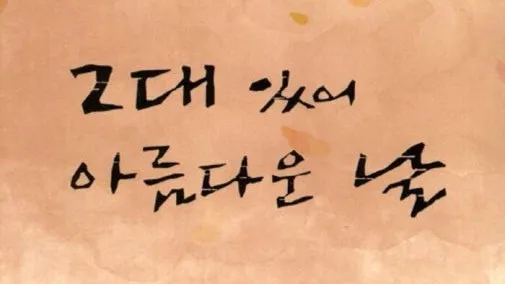 그대 있어
아름다운 날